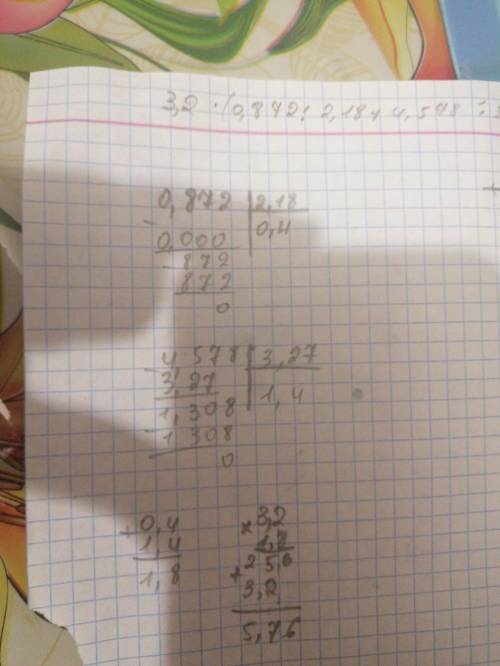 3,2 · (0,872 : 2,18 + 4,578 :
0,872 | 2,18
- 0,000 | 0,4
- 872
872
0
- 4,578 | 3,27
3,27 | 1,4
- 1,308
1 308
0
+ 0,4
1,4
1,8
× 3,2
1,8
+ 2 5 6
3,2
5,76